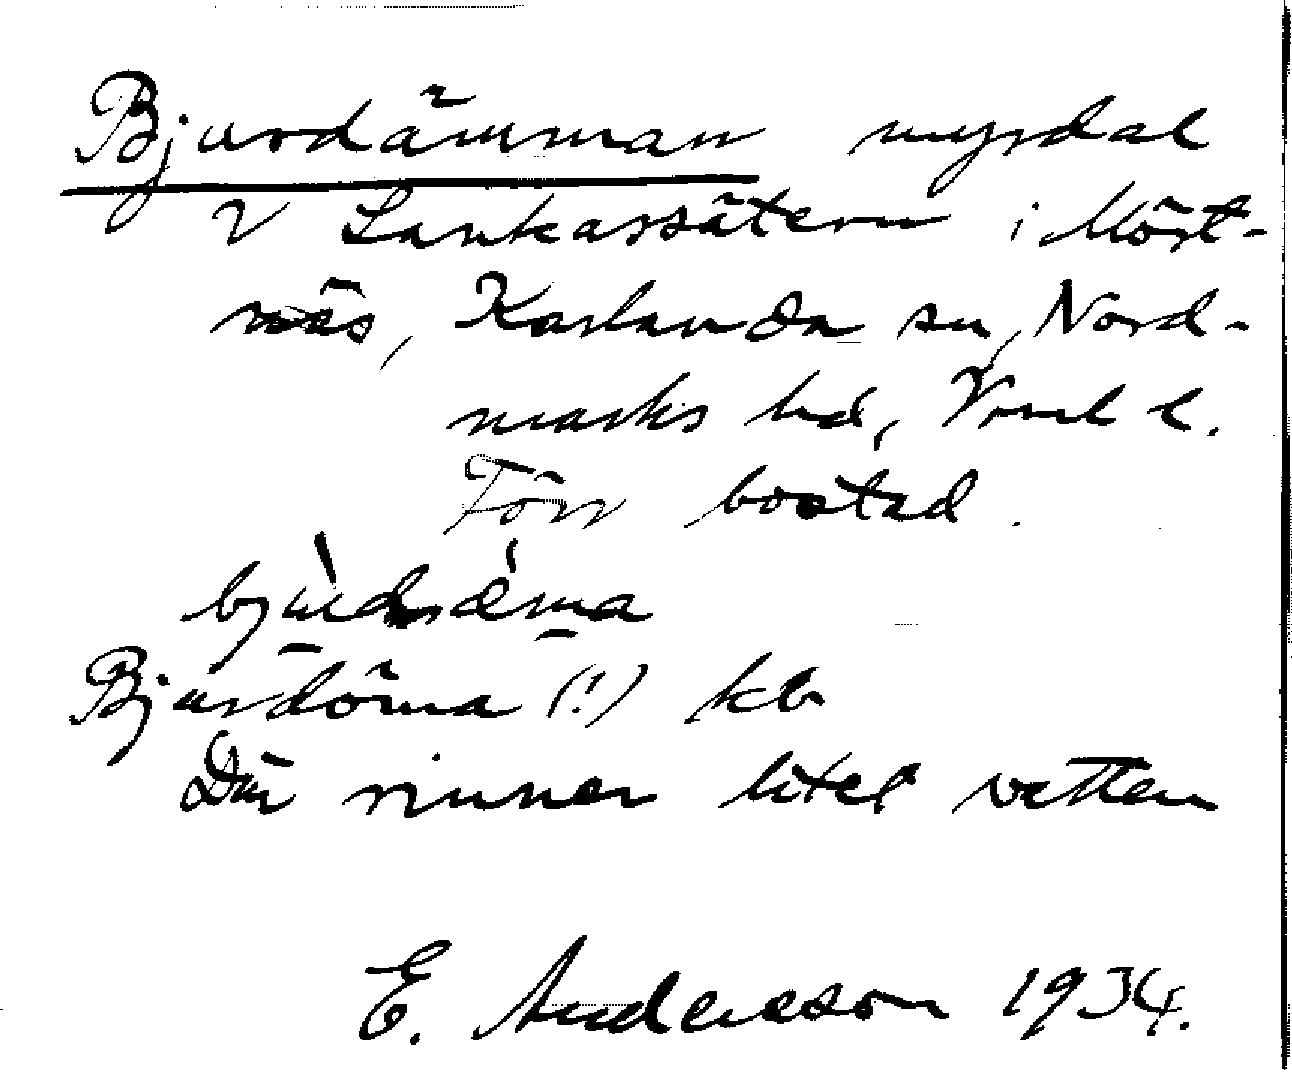 Bjurdämman myrdal
V Lankassätern i Mört-
näs, Karlanda sn, Nord-
marks hd, Vrml l.
Förr bostad.
Bjurdöma (!) kb
Där rinner litet vatten
E. Andersson 1934.